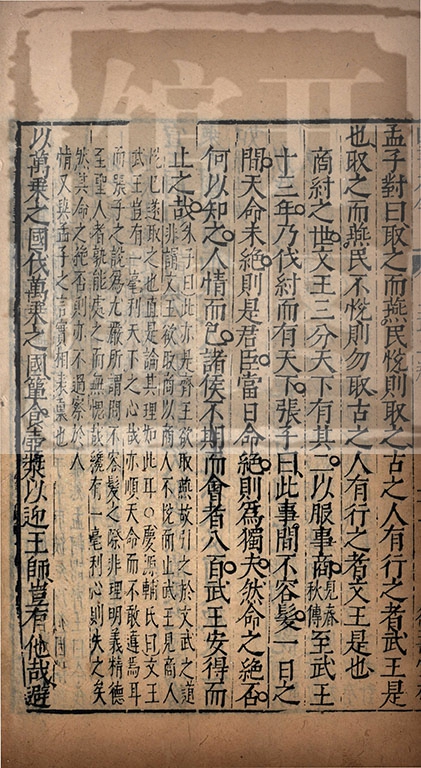 孟子對曰取之而燕民悅則取之古之人有行之者武王是
也取之而燕民不悅則勿取古之人有行之者文王是也
商紂之世文王三分天下有其二以服事商見春秋傳至武王
十三年乃伐紂而有天下張子曰此事間不容髮一日之
間天命未絕則是君臣當日命絕則爲獨夫然命之絕否
何以知之人情而已諸侯不期而會者八百武王安得而
止之哉
朱子曰此亦是齊王欲取燕故引之於文武之道
非謂文王欲取商以商人不悅而止武王見商人
悅已遂取之也直是論其理如此耳○慶源輔氏曰文王
武王豈有一毫利天下之心哉亦順天命而不敢違焉耳
而張子之說爲尤嚴所謂間不容髮之際非理明義精德
至聖人者孰能處之而無愧哉纔有一毫利心則失之矣
然其命之絕否則亦不過察於人
情又與孟子之言實相表裏也
以萬乘之國伐萬乘之國簞食壺漿以迎王師豈有他哉避